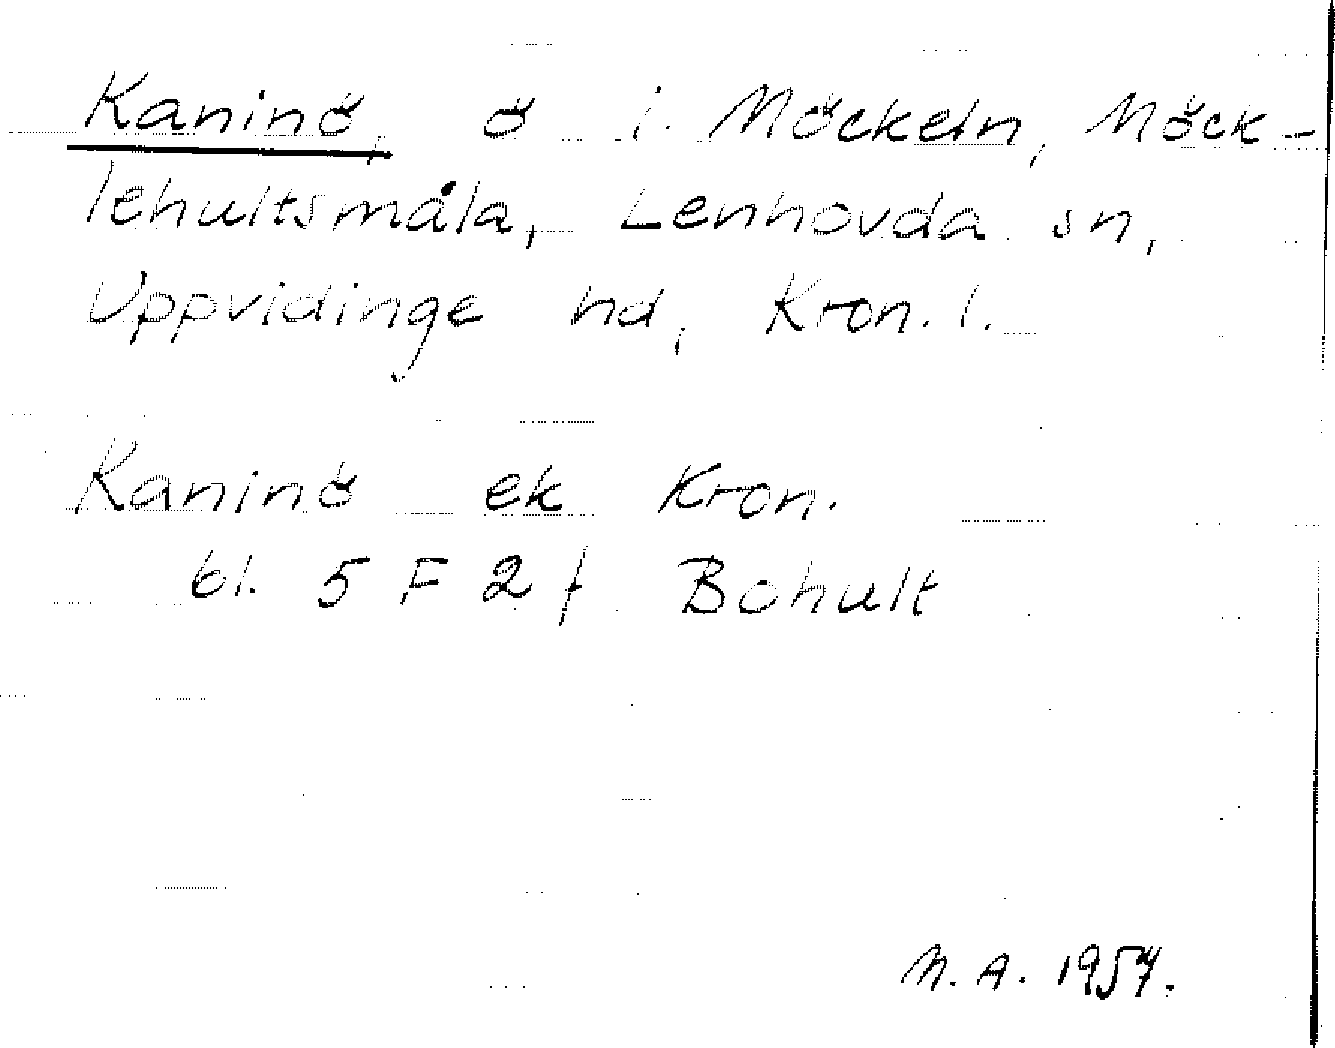 Kaninö, ö i Möckeln, Möck-
lehultsmåla, Lenhovda sn,
Uppvidinge hd, Kron. l.
Kaninö ek Kron.
bl. 5 F 2 f Bohult
N. A. 1957.